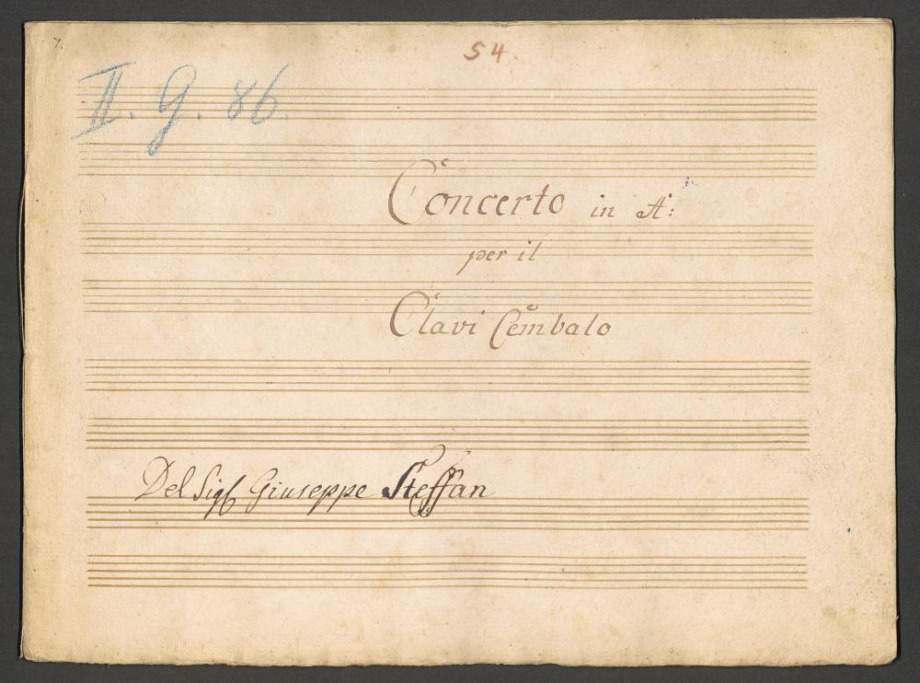 7.
54.
II. G. 86.
Concerto in A:
per il
Clavi Cembalo
Del Sigl Giuseppe Steffan